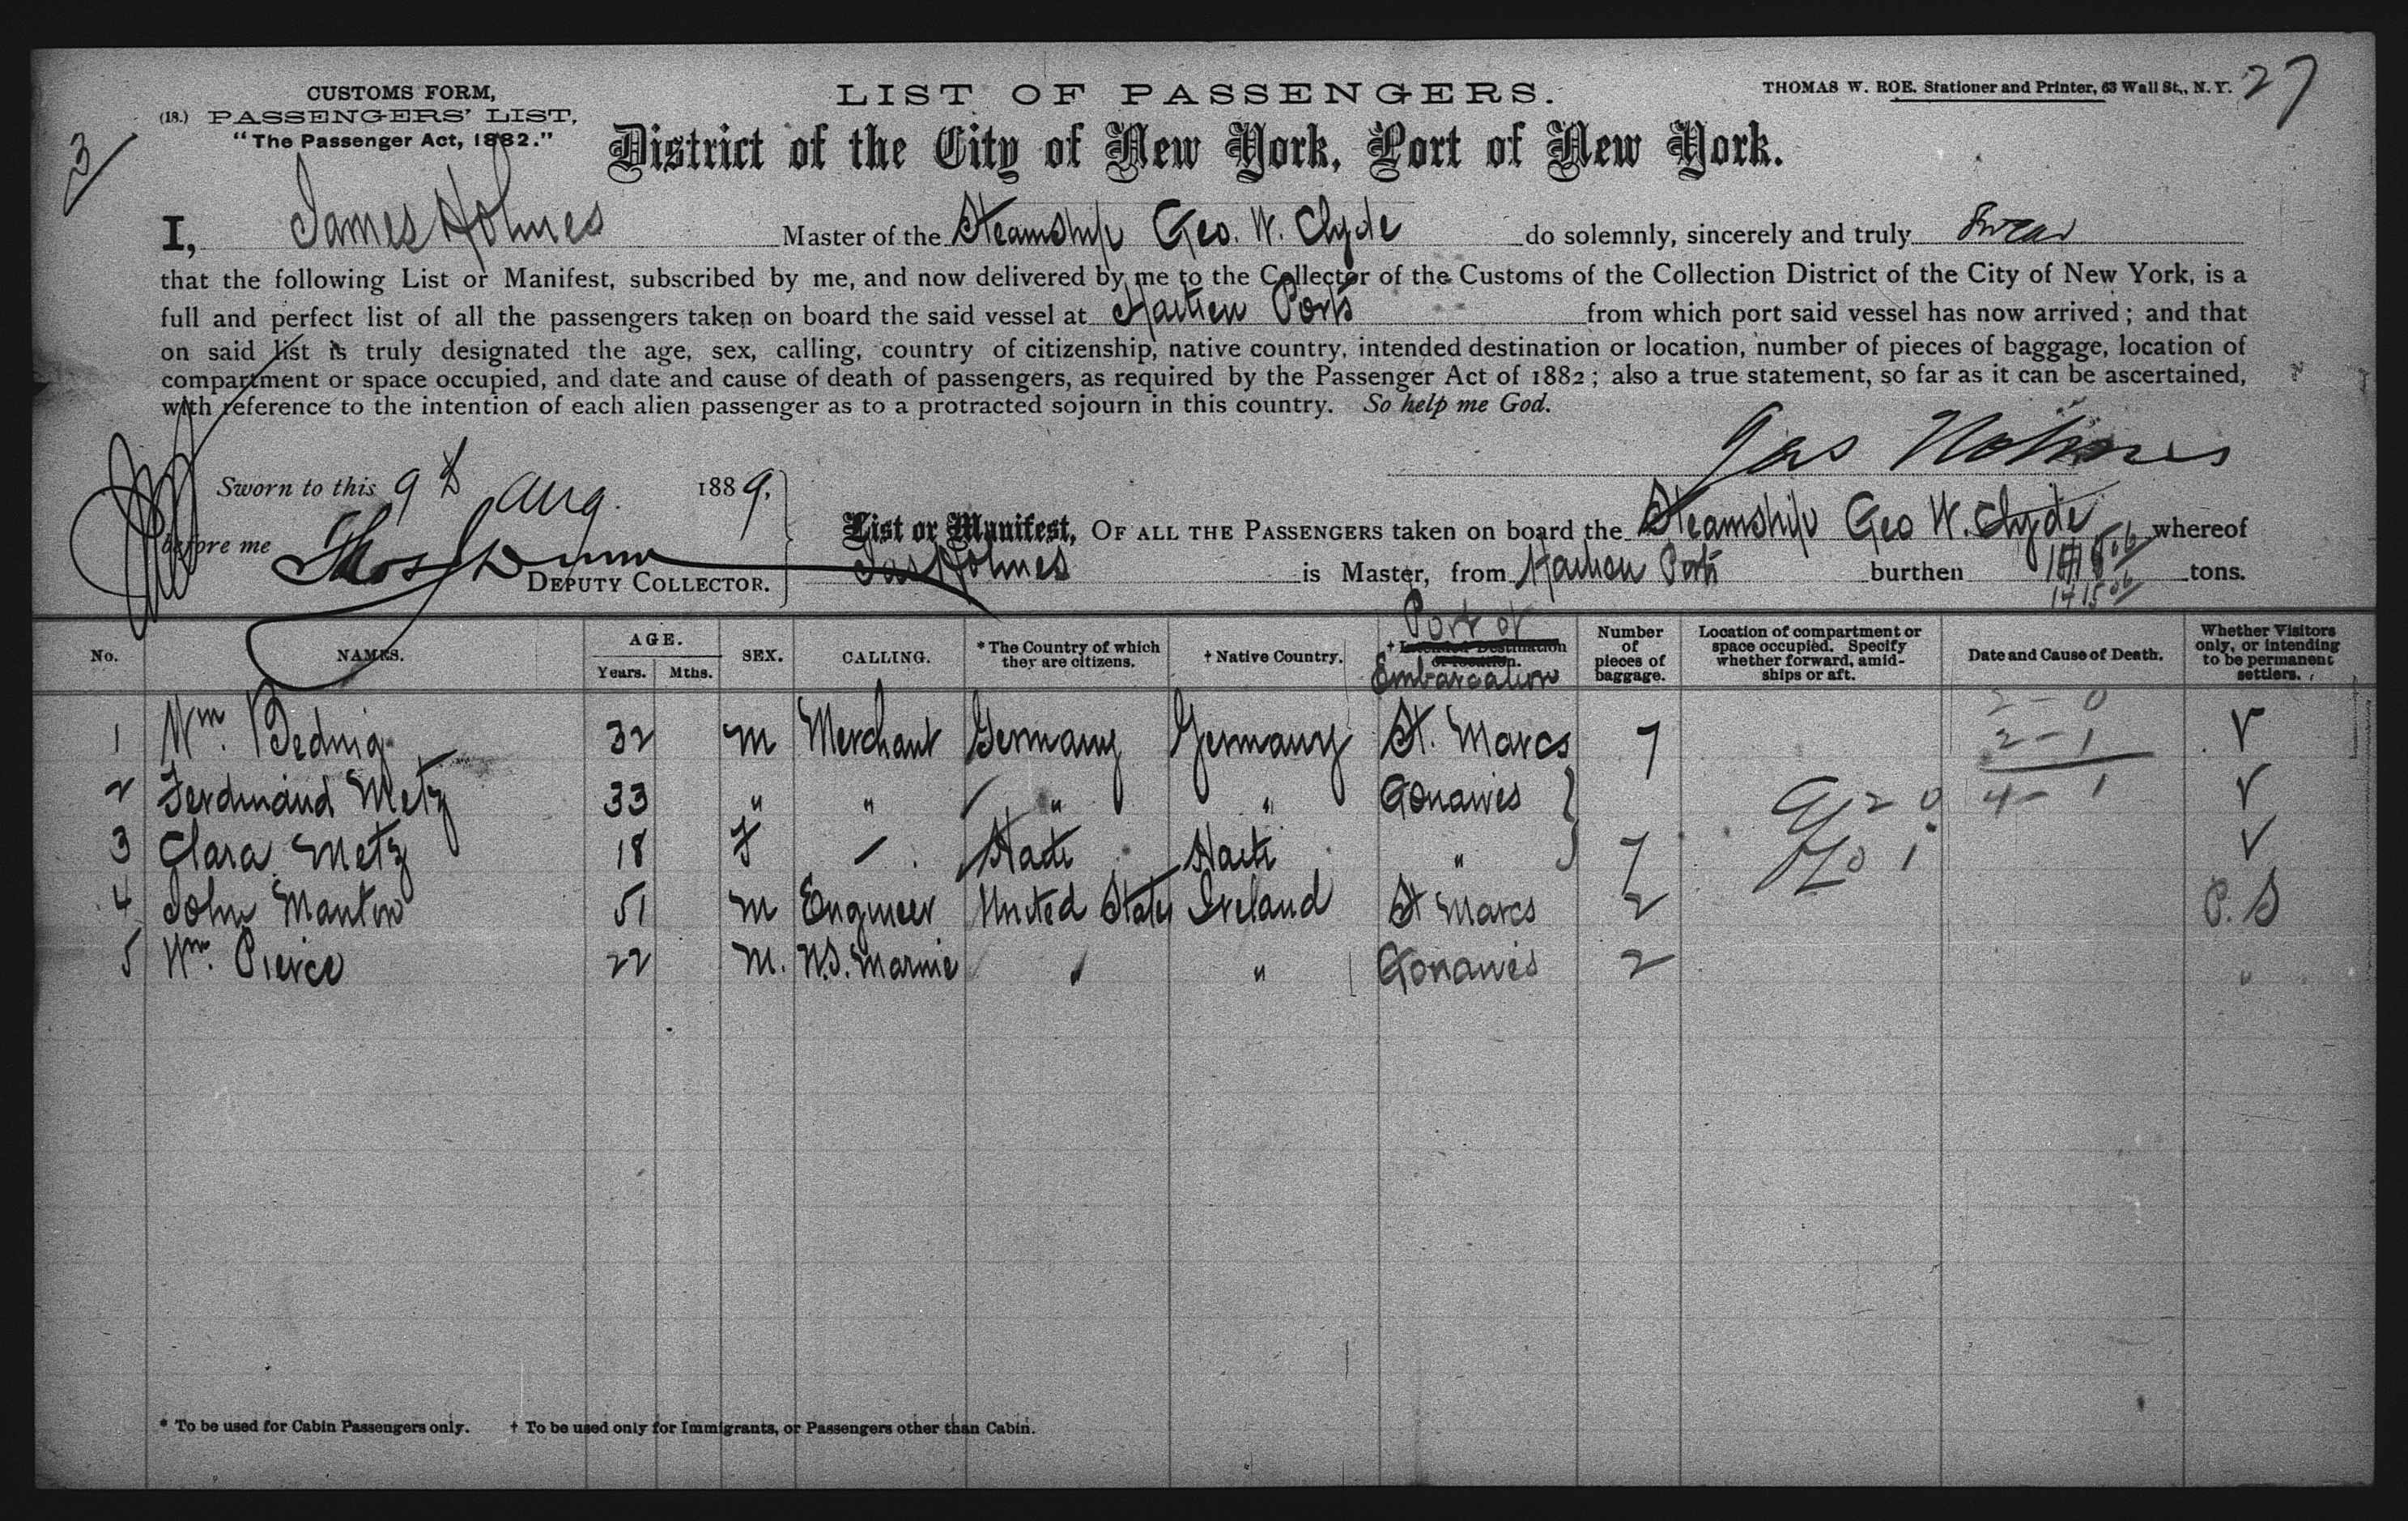 CUSTOMS FORM,
(18.) PASSENGERS' LIST,
"The Passenger Act, 1882."
3
LIST OF PASSENGERS.
THOMAS W. ROE. Stationer and Printer, 63 Wall St., N.Y.
27
District of the City of New York, Port of New York.
I, James Holmes Master of the Steamship Geo. W. Clyde do solemnly, sincerely and truly swear
that the following List or Manifest, subscribed by me, and now delivered by me to the Collector of the Customs of the Collection District of the City of New York, is a
full and perfect list of all the passengers taken on board the said vessel at Haitien Ports from which port said vessel has now arrived; and that
on said list is truly designated the age, sex, calling, country of citizenship, native country, intended destination or location, number of pieces of baggage, location of
compartment or space occupied, and date and cause of death of passengers, as required by the Passenger Act of 1882; also a true statement, so far as it can be ascertained,
with reference to the intention of each alien passenger as to a protracted sojourn in this country. So help me God.
Jas Holmes
Sworn to this 9th Aug. 1889,
before me Thos Dunn
DEPUTY COLLECTOR.
List or Manifest, OF ALL THE PASSENGERS taken on board the Steamship Geo W. Clyde whereof
Jas Holmes is Master, from Haitien Ports burthen tons.
1415 06
No. NAMES. AGE. Years. Mths. SEX. CALLING. * The Country of which they are citizens. † Native Country. † Intended Destination or location. Port of Embarcation Number of pieces of baggage. Location of compartment or space occupied. Specify whether forward, amid-ships or aft. Date and Cause of Death. Whether Visitors only, or intending to be permanent settlers.
2 - 0
1 Wm. Bednig 32 M Merchant Germany Germany St. Marcs 7 2 - 1 V
2 Ferdinand Metz 33 " " " " Gonaives 4 - 1 V
3 Clara Metz 18 F - Haiti Haiti " 7 V
4 John Manton 51 M Engineer United States Ireland St Marcs 2 P. S
5 Wm. Pierce 22 M. U.S. Marine " " Gonaives 2 "
* To be used for Cabin Passengers only. † To be used only for Immigrants, or Passengers other than Cabin.